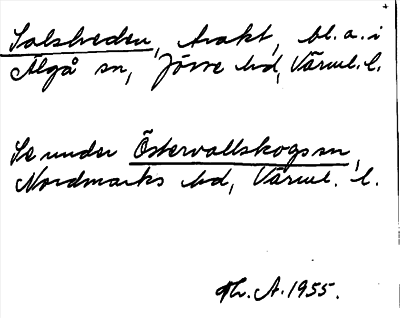 Salsheden, trakt, bl. a. i
Älgå sn, Jösse hd, Värml. l.
Se under Östervallskogs sn,
Nordmarks hd, Värml. l.
Th. A. 1955.